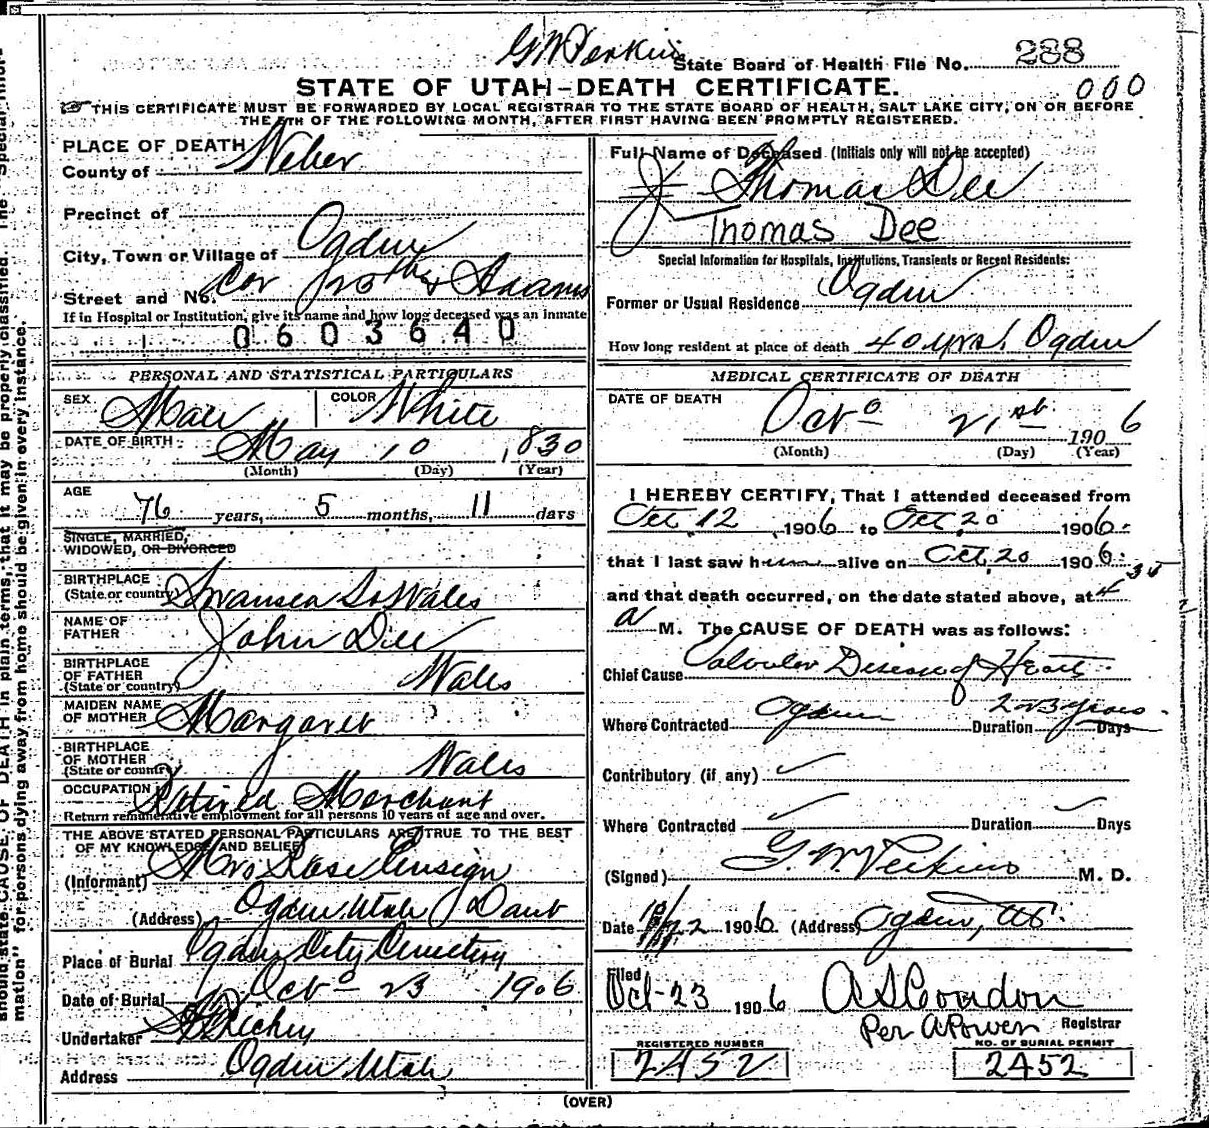 G W Perkins
State Board of Health File No. 288
STATE OF UTAH-DEATH CERTIFICATE. 000
THIS CERTIFICATE MUST BE FORWARDED BY LOCAL REGISTRAR TO THE STATE BOARD OF HEALTH, SALT LAKE CITY, ON OR BEFORE
THE 5TH OF THE FOLLOWING MONTH, AFTER FIRST HAVING BEEN PROMPTLY REGISTERED.
PLACE OF DEATH
County of Weber
Precinct of
City, Town or Village of Ogden
Street and No. Cor & Adams
If in Hospital or Institution, give its name and how long deceased was an inmate
0603640
PERSONAL AND STATISTICAL PARTICULARS
SEX Male COLOR White
DATE OF BIRTH May 10 1830
(Month) (Day) (Year)
AGE
76 years, 5 months, 11 days
SINGLE, MARRIED,
WIDOWED, OR DIVORCED
BIRTHPLACE
(State or country) Swansea So Wales
NAME OF
FATHER John Dee
BIRTHPLACE
OF FATHER
(State or country) Wales
MAIDEN NAME
OF MOTHER Margaret
BIRTHPLACE
OF MOTHER
(State or country) Wales
OCCUPATION Retired Merchant
Return remunerative employment for all persons 10 years of age and over.
THE ABOVE STATED PERSONAL PARTICULARS ARE TRUE TO THE BEST
OF MY KNOWLEDGE AND BELIEF
(Informant) Mrs Rose Ensign
(Address) Ogden Utah Daut
Place of Burial Ogden City Cemetery
Date of Burial Oct 23 1906
Undertaker Richey
Address Ogden Utah
Full Name of Deceased (Initials only will not be accepted)
J Thomas Dee
Thomas Dee
Special Information for Hospitals, Institutions, Transients or Recent Residents:
Former or Usual Residence Ogden
How long resident at place of death 40 yrs. Ogden
MEDICAL CERTIFICATE OF DEATH
DATE OF DEATH
Oct 21st 1906
(Month) (Day) (Year)
I HEREBY CERTIFY, That I attended deceased from
Oct, 12, 1906 to Oct, 20 1906
that I last saw him alive on Oct, 20 1906
and that death occurred, on the date stated above, at 4 30
a M. The CAUSE OF DEATH was as follows:
Chief Cause Valvular Disease of Heart
Where Contracted Ogden Duration 2 or 3 years Days
Contributory (if any)
Where Contracted Duration Days
(Signed) G. W. Perkins M. D.
Date 10/22 1906. (Address) Ogden, Ut
Filed
Oct-23 1906 A S Condon
Per A Power Registrar
REGISTERED NUMBER NO. OF BURIAL PERMIT
2452 2452
(OVER)
should state CAUSE OF DEATH in plain terms, that it may be properly classified. The "Special Infor-
mation" for persons dying away from home should be given in every instance.